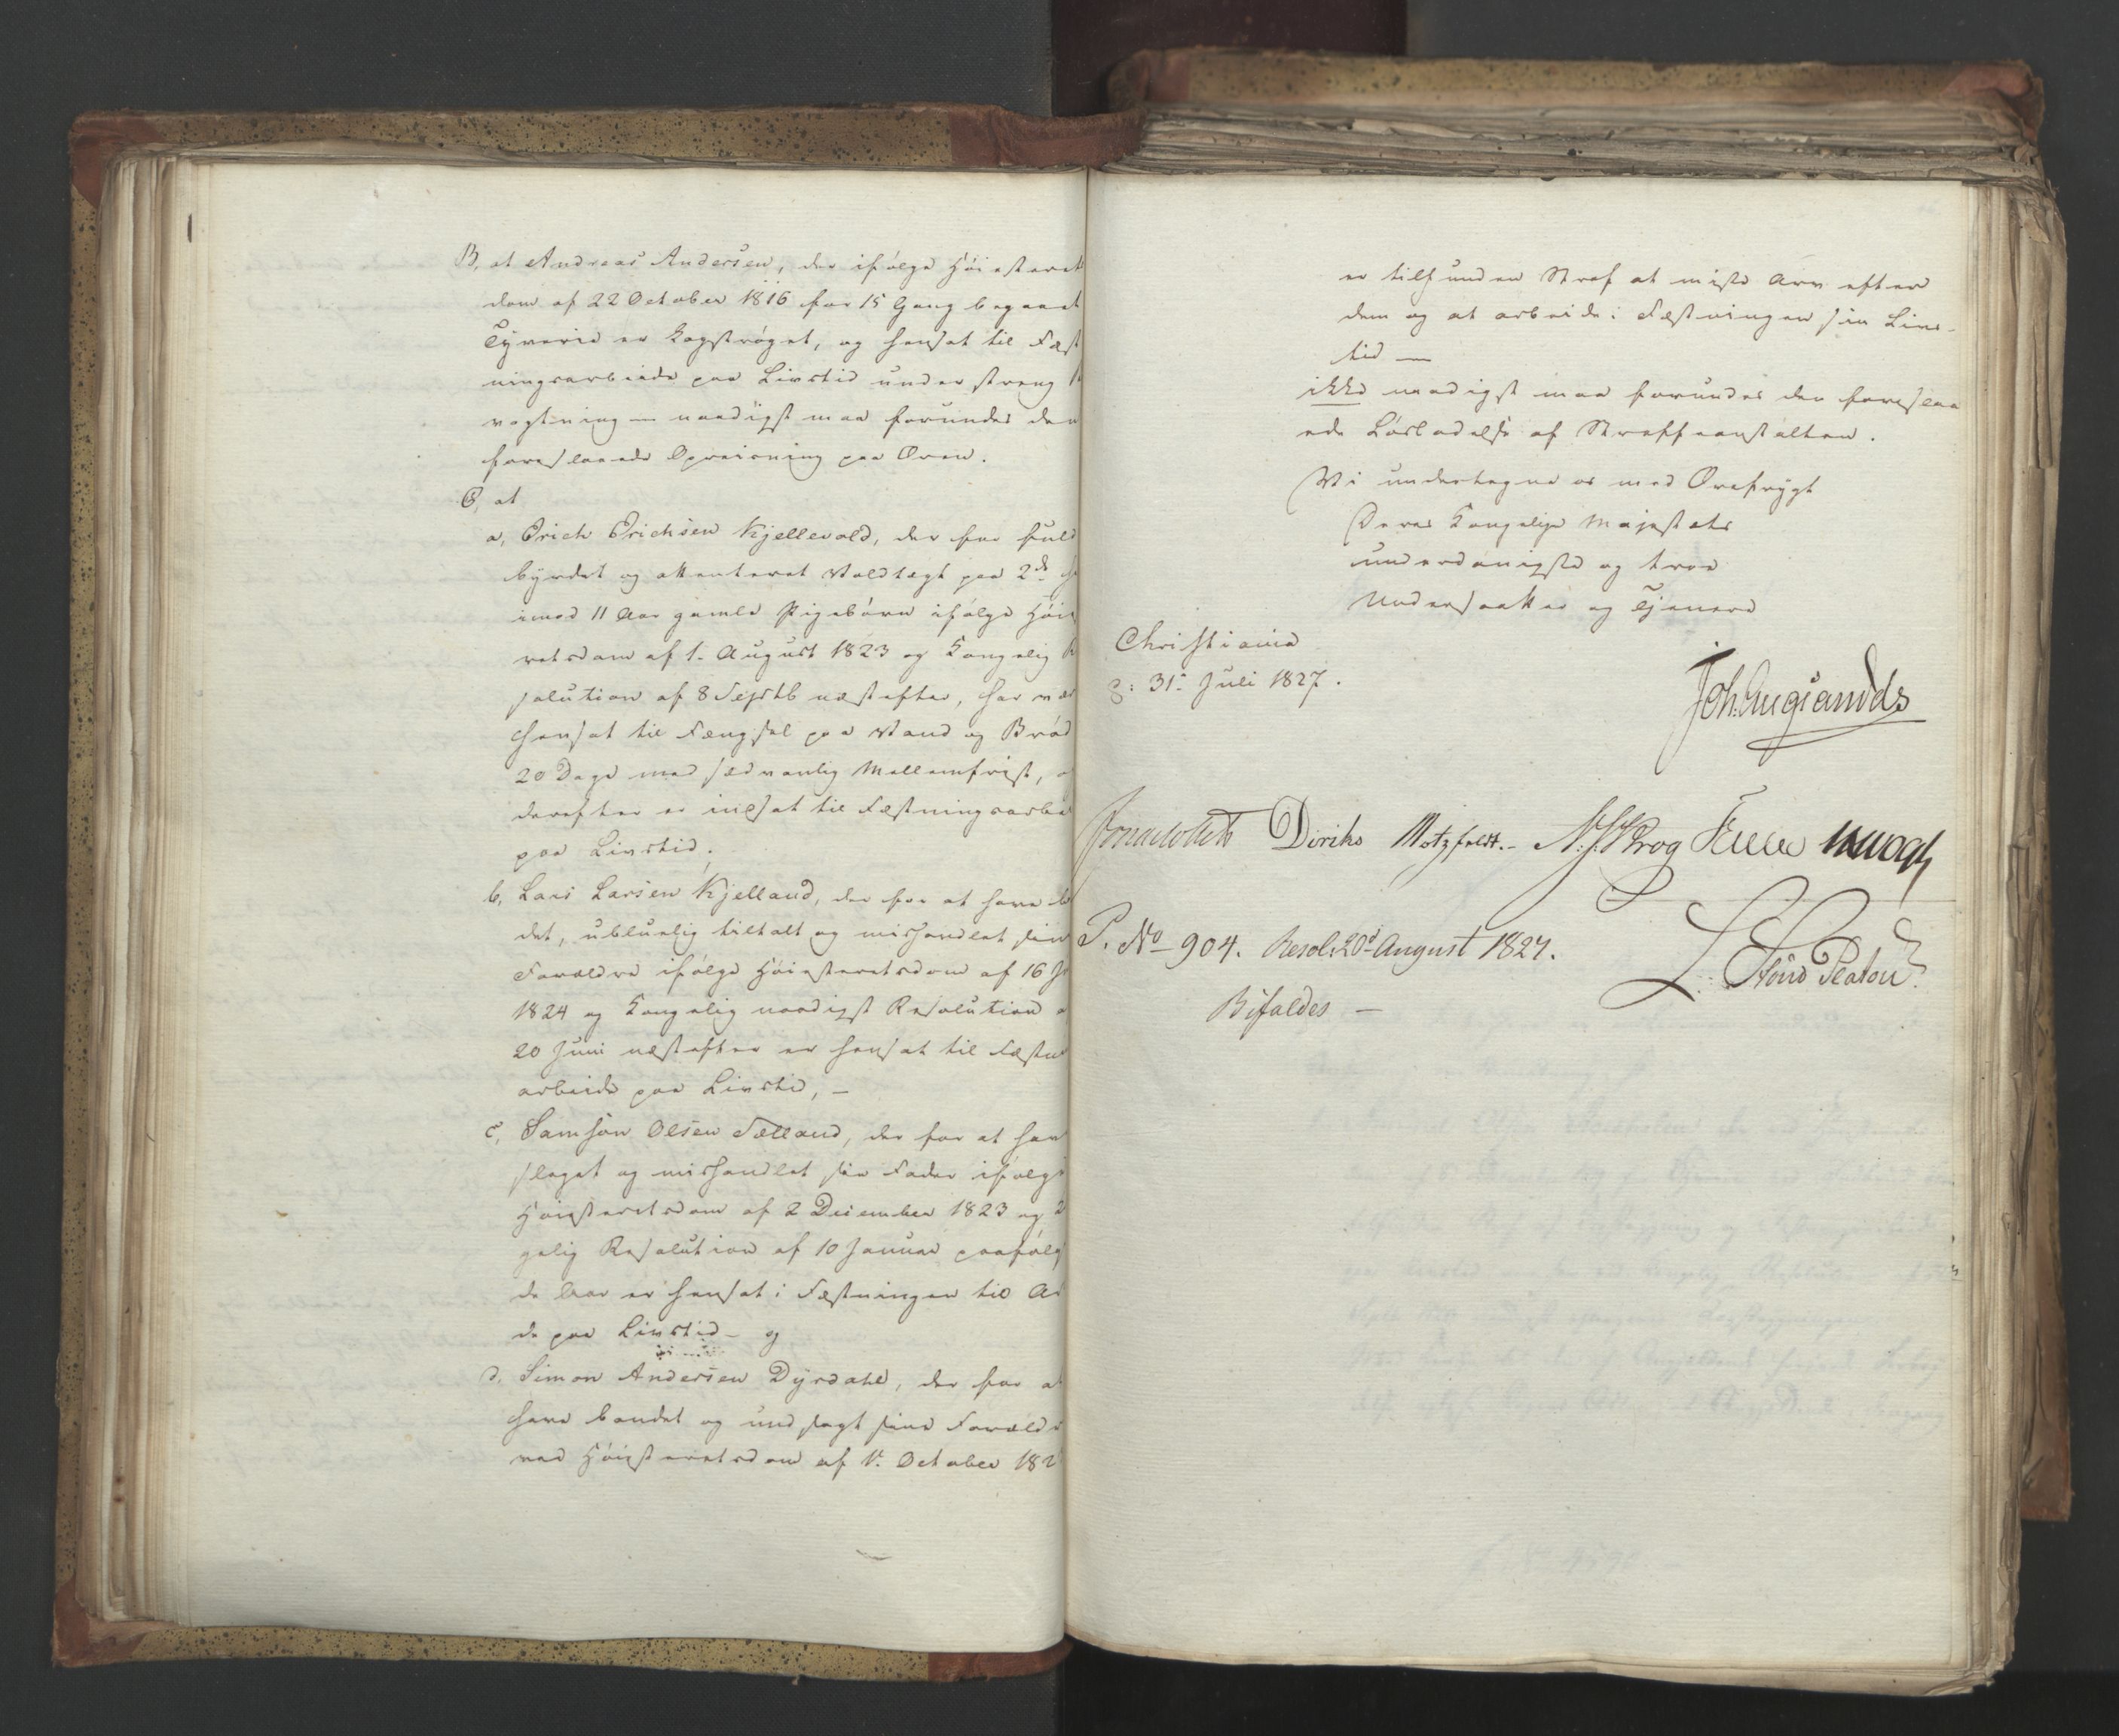 B, at Andreas Andersen, der ifølge Høiesteret
dom af 22 October 1816 for 15 Gang begaaet
Tyverie er kagstrøget, og hensat til Fæst
ningsarbeide paa Livstid under streng
vogtning — naadigst maa forundes den
foreslaaede Opreisning paa Æren.
C, at
a, Erich Erichsen Kjellevold, der for fuld
byrdet og attenteret Voldtægt paa 2de
imod 11 Aar gamle Pigebørn ifølge Høie
retsdom af 1. August 1823 og Kongelig
solution af 8 Septb næstefter, har været
hensat til Fængsel paa Vand og Brød
20 Dage med sædvanlig Mellemfrist, o
derefter er indsat til Fæstningsarbei
paa Livstid;
b, Lars Larsen Kjelland, der for at have
det, ubluelig tiltalt og mishandlet sine
Forældre ifølge Høiesteretsdom af 16 J
1824 og Kongelig naadigst Resolution a
20 Juni næstefter er hensat til Fæstn
arbeide paa Livstid, —
c, Samson Olsen Fælland, der for at have
slaget og mishandlet sin Fader ifølge
Høiesteretsdom af 2 December 1823 og
gelig Resolution af 10 Januar paafølg
de Aar er hensat i Fæstningen til Ar
de paa Livstid — og
d, Simon Andersen Dyrdahl, der for at
have bandet og undsagt sine Forældre
ved Høiesteretsdom af 1. October 182
er tilfunden Straf at miste Arv efter
dem og at arbeide i Fæstningen sin Livs-
tid —
ikke naadigst maa forundes den foreslaa
ede Løsladelse af Straffeanstalten.
Vi undertegne os med Ærefrygt
Deres Kongelige Majestæts
underdanigste og troe
Undersaatter og Tjenere
Christiania
d: 31te Juli 1827.
Joh. Aug. Sandels
Diriks Motzfeldt. N. J. Krog
P. No 904. Resol. 20de August 1827.
L. Stoud Platou
Bifaldes —